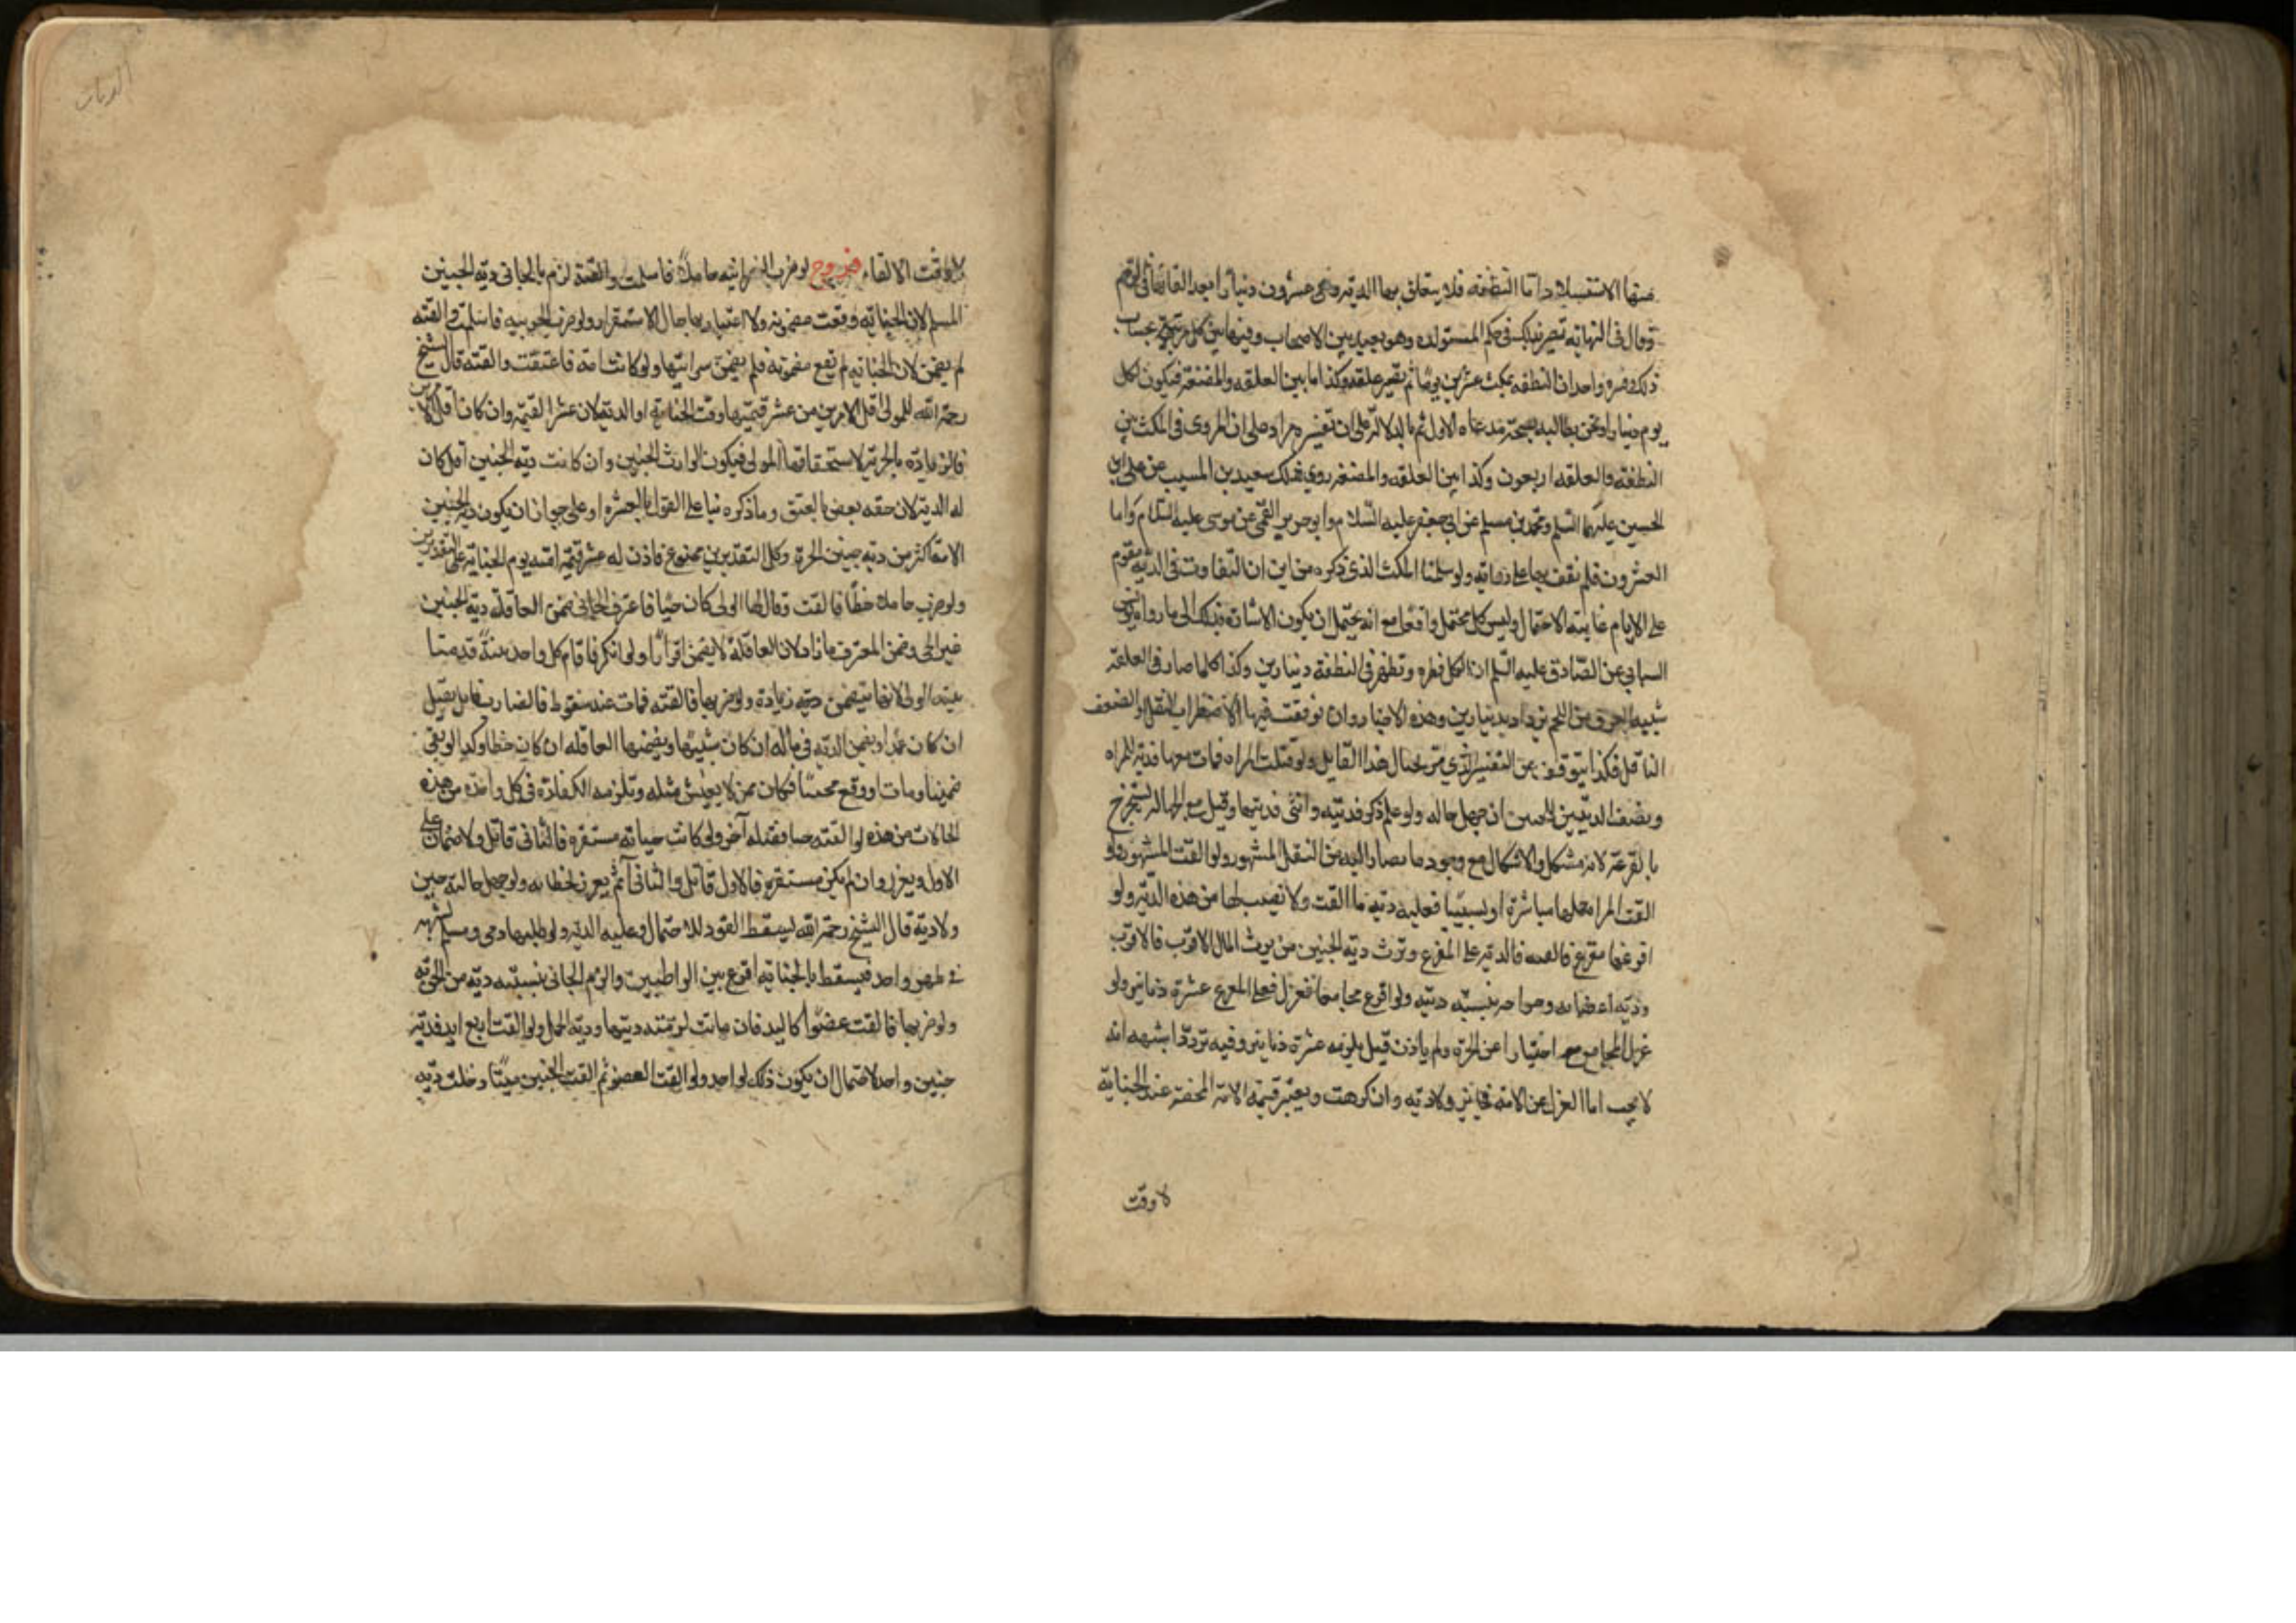 منها الاستفسلاد اما النطفه فلا يتعلق بها الا الديه وهى عشرون دينارا بعد القائها فى الرحم
وقال فى النهايه تصير بذلك فى حكم المستولده وهو بعيد بين الاصحاب وفيما بين كل مرتبة بحساب
ذلك وفسره واحد ان النطفه يمكث عشرين يوما ثم تصير علقه وكذا ما بين العلقه والمضغة فيكون لكل
يوم دينارا ونحن نطالبه بصحة ما ادعاه الاول ثم بالدلالة على ان تفسيره مراد على ان المروى فى المكث بين
النطفه والعلقه اربعون وكذا بين العلقه والمضغه روى ذلك سعيد بن المسيب عن على ابن
الحسين عليهما السلم ومحمد بن مسلم عن ابى جعفر عليه السلام وابو جرير القمى عن موسى عليه السلام واما
العشرون فلم نقف بها على روايه ولو سلمنا المكث الذى ذكره من اين ان التفاوت فى الديه مقسوم
على الايام غايته الاحتمال وليس كل محتمل واقعا مع انه يحتمل ان يكون الاشارة بذلك الى ما رواه يونس
الشيبانى عن الصادق عليه السلم ان لكل قطره تظهر فى النطفة دينارين وكذا كلما صار فى العلقة
شبيه العروق من اللحم يزداد دينارين وهذه الاخبار وان توقفت فيها الاضطراب النقل او لضعف
الناقل فكذا يتوقف عن التفسير الذى مر بخيال هذا القايل ولو قتلت المراه فمات معها فدية للمراه
ونصف الديتين للجنين ان جهل حاله ولو علم ذكر فديته وانثى فديتها وقيل مع الجهالة يستخرج
بالقرعة لانه مشكل ولا اشكال مع وجود ما يصار اليه من النقل المشهور ولو
القت المراه حملها مباشرة او تسبيبا فعليه دية ما القت ولا نصيب لها من هذه الدية ولو
افزعها مفزع فالقته فالدية على المفزع وتورث دية الجنين من يرث المال الاقرب فالاقرب
ودية اعضائه وجراحاته بنسبة ديته ولو افزع مجامعا فعزل فعلى المفزع عشرة دنانير ولو
عزل المجامع اختيارا عن الحرة ولم ياذن قيل يلزمه عشرة دنانير وفيه تردد اشبهه انه
لا يجب اما العزل عن الامه فجائز ولا ديه وان كرهت ويعتبر قيمة الامة المجهضة عند الجنايه
لا وقت
الديات
لا وقت الالقاء فروع لو ضرب النصرانيه حاملا فاسلمت والقته لزم الجانى ديه الجنين
المسلم لان الجنايه وقعت مضمونه ولا اعتبار بها حال الاستقرار ولو ضرب الحربيه فاسلمت والقته
لم يضمن لان الجنايه لم تقع مضمونه فلم يضمن سرايتها ولو كانت امه فاعتقت والقته قال الشيخ
رحمه الله للمولى اقل الامرين من عشر قيمتها وقت الجنايه او الديه لان عشر القيمه وان كان اقل
فالزياده بالحرية لا يستحقها المولى فيكون لوارث الجنين وان كانت ديه الجنين اقل كان
له الديه لان حقه نقص بالعتق وما ذكره بناء على القول بالعشر او على جواز ان يكون دية جنين
الامة اكثر من ديه جنين الحرة وكلا التقديرين ممنوع فاذن له عشر قيمة امته يوم الجناية على التقديرين
ولو ضرب حاملا خطأ فالقت وقال الولى كان حيا فاعترف الجانى ضمن العاقلة دية الجنين
غير الحى وضمن المعترف ما زاد لان العاقلة لا يضمن اقرارا ولو انكر فاقام كل واحد بينة قدمنا
بينه الولى لانها يتضمن زيادة ولو ضربها فالقته فمات عند سقوطه فالضارب قاتل يقتل
ان كان عمدا ويضمن الديه فى ماله ان كان شبيها ويضمنها العاقله ان كان خطا وكذا لو بقى
ضمينا ومات او وقع صحيحا فكان ممن لا يعيش مثله وتلزمه الكفارة فى كل واحدة من هذه
الحالات ولو القته حيا فقتله آخر ولو كانت حياته مستقره فالثانى قاتل ولا ضمان على
الاول ويعزر وان لم يكن مستقره فالاول قاتل والثانى آثم يعزر لخطائه ولو جهل حاله حين
ولاديه قال الشيخ رحمه الله يسقط القود للاحتمال وعليه الديه ولو وطئها ذمى ومسلم لشبهه
فى طهر واحد فيسقط بالجنايه اقرع بين الواطيين والزم الجانى بنسبته ديه من الحق به
ولو ضربها فالقت عضوا كاليد فان ماتت لزمته ديتها وديه الحمل ولو القت اربع ايد فدية
جنين واحد لاحتمال ان يكون ذلك لواحد ولو القت العضو ثم القت الجنين ميتا دخلت ديه